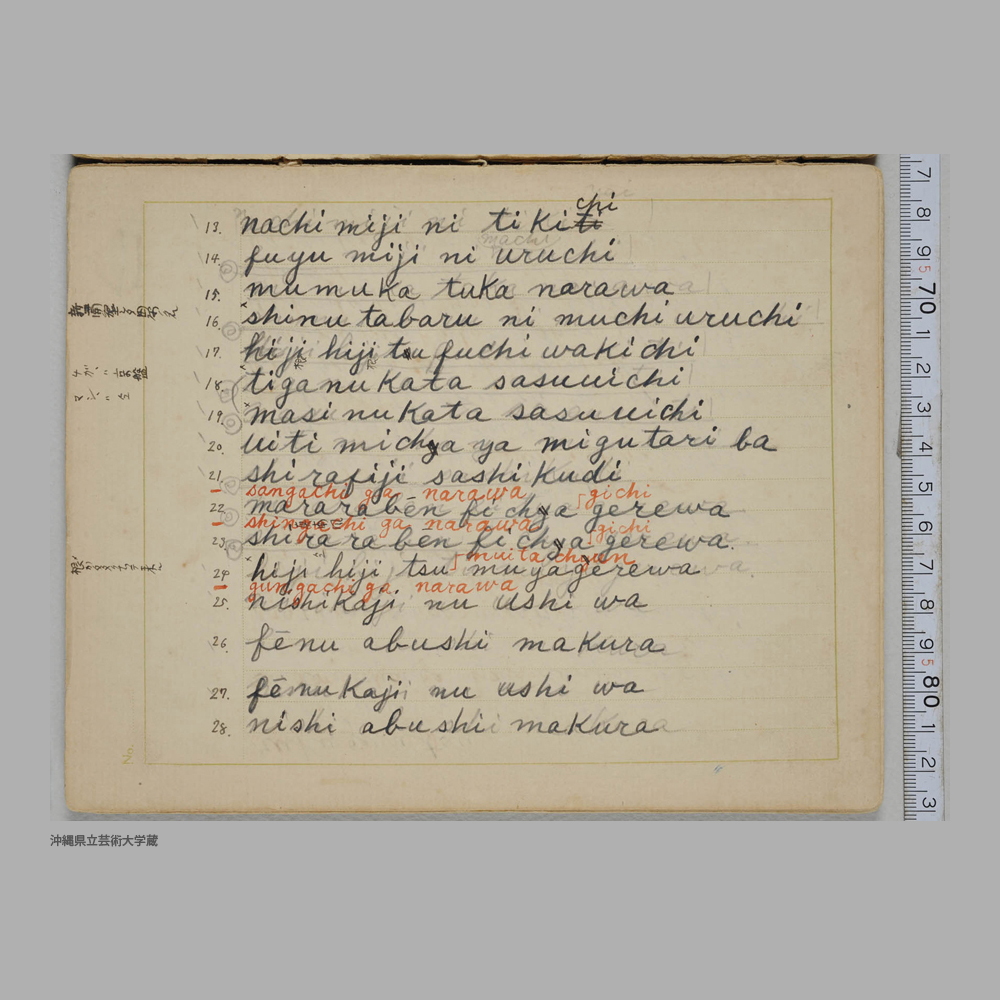 13. nachi miji ni tiki chi
14. fuyu miji ni uruchi
15. mumuka tuka narawa
16. shinu tabaru ni muchi uruchi
17. hiji hiji tsu fuchi wakichi
18. tiga nu kata sasuuichi
19. masi nu kata sasuuichi
20. uiti michya ya migutari ba
21. shirafiji sashi kudi
sangachi ga narawa gichi
22. mararabēn fichya gerewa
shingwachi ga narawa gichi
23. shirarabēn fichya gerewa.
muita chyun
24. hiji hiji tsu muyagerewa
gungachi ga narawa
25. nishikaji nu ushi wa
26. fēnu abushi makura
27. fēnu kaji nu ushi wa
28. nishi abushi makura
No.
7 8 9 5 70 1 2 3 4 5 6 7 8 9 5 80 1 2 3
沖縄県立芸術大学蔵